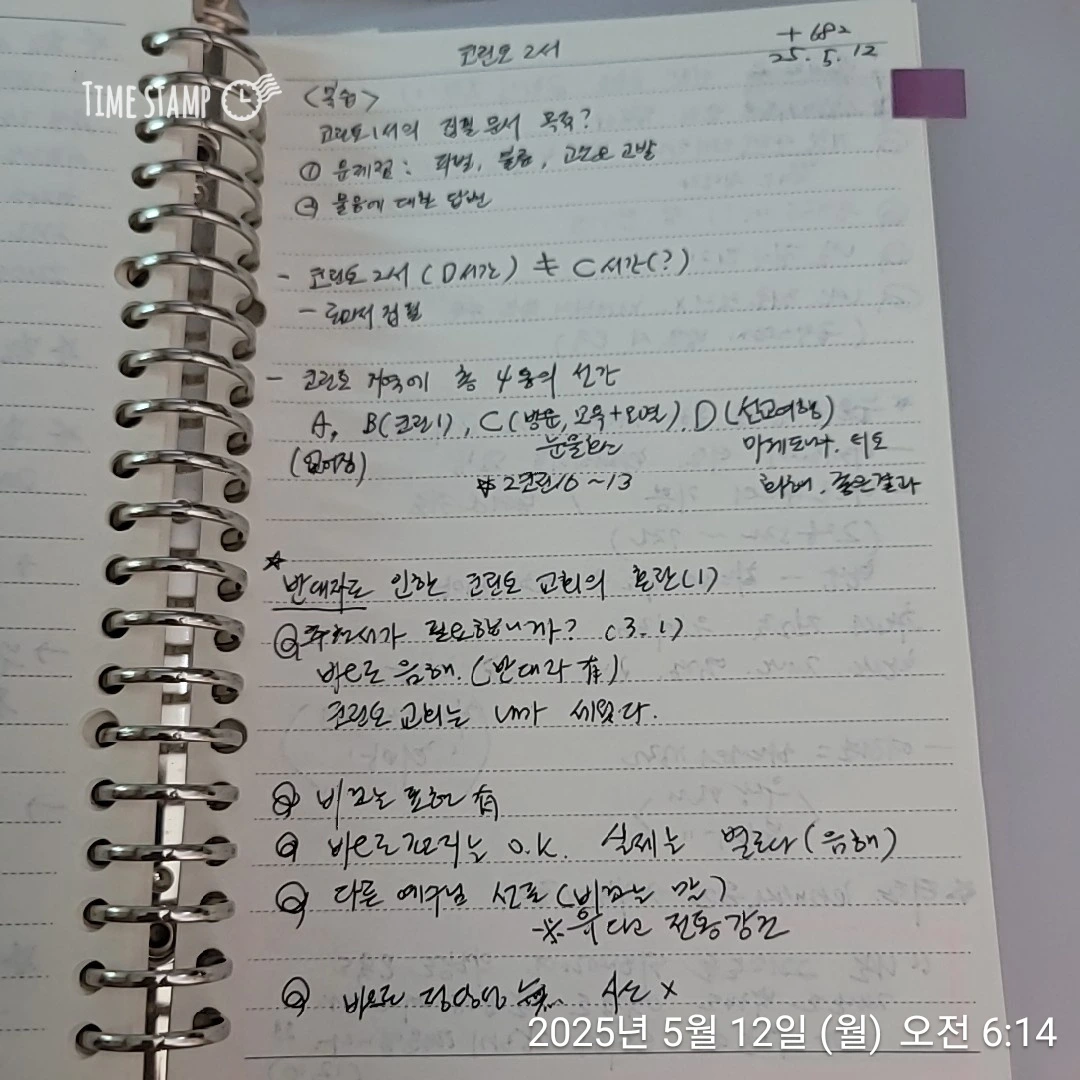 코린토 2서
+682
25. 5. 12
TIME STAMP
<복습>
코린토1서의 집필 문서 목적?
① 문제점: 파벌, 불륜, 고발
② 물음에 대한 답변
- 코린토 2서 (D서간) ≠ C서간(?)
- 로마서 집필
- 코린토 지역에 총 4통의 서간
A, B(코린1), C(방문, 모욕+외면), D(선교여행)
(잃어짐) 눈물 마케도니아, 티토
※ 2코린10~13 화해, 좋은결과
☆ 반대자로 인한 코린토 교회의 혼란(1)
Q 추천서가 필요합니까? (3.1)
바오로 음해. (반대자 有)
코린토 교회는 내가 세웠다.
Q 비꼬는 표현 有
Q 바오로 편지는 O.K. 실제는 별로다 (음해)
Q 다른 예수님 선포 (비꼬는 말)
※ 유다교 전통강조
Q 바오로 정당성 無. 사도 X
2025년 5월 12일 (월) 오전 6:14